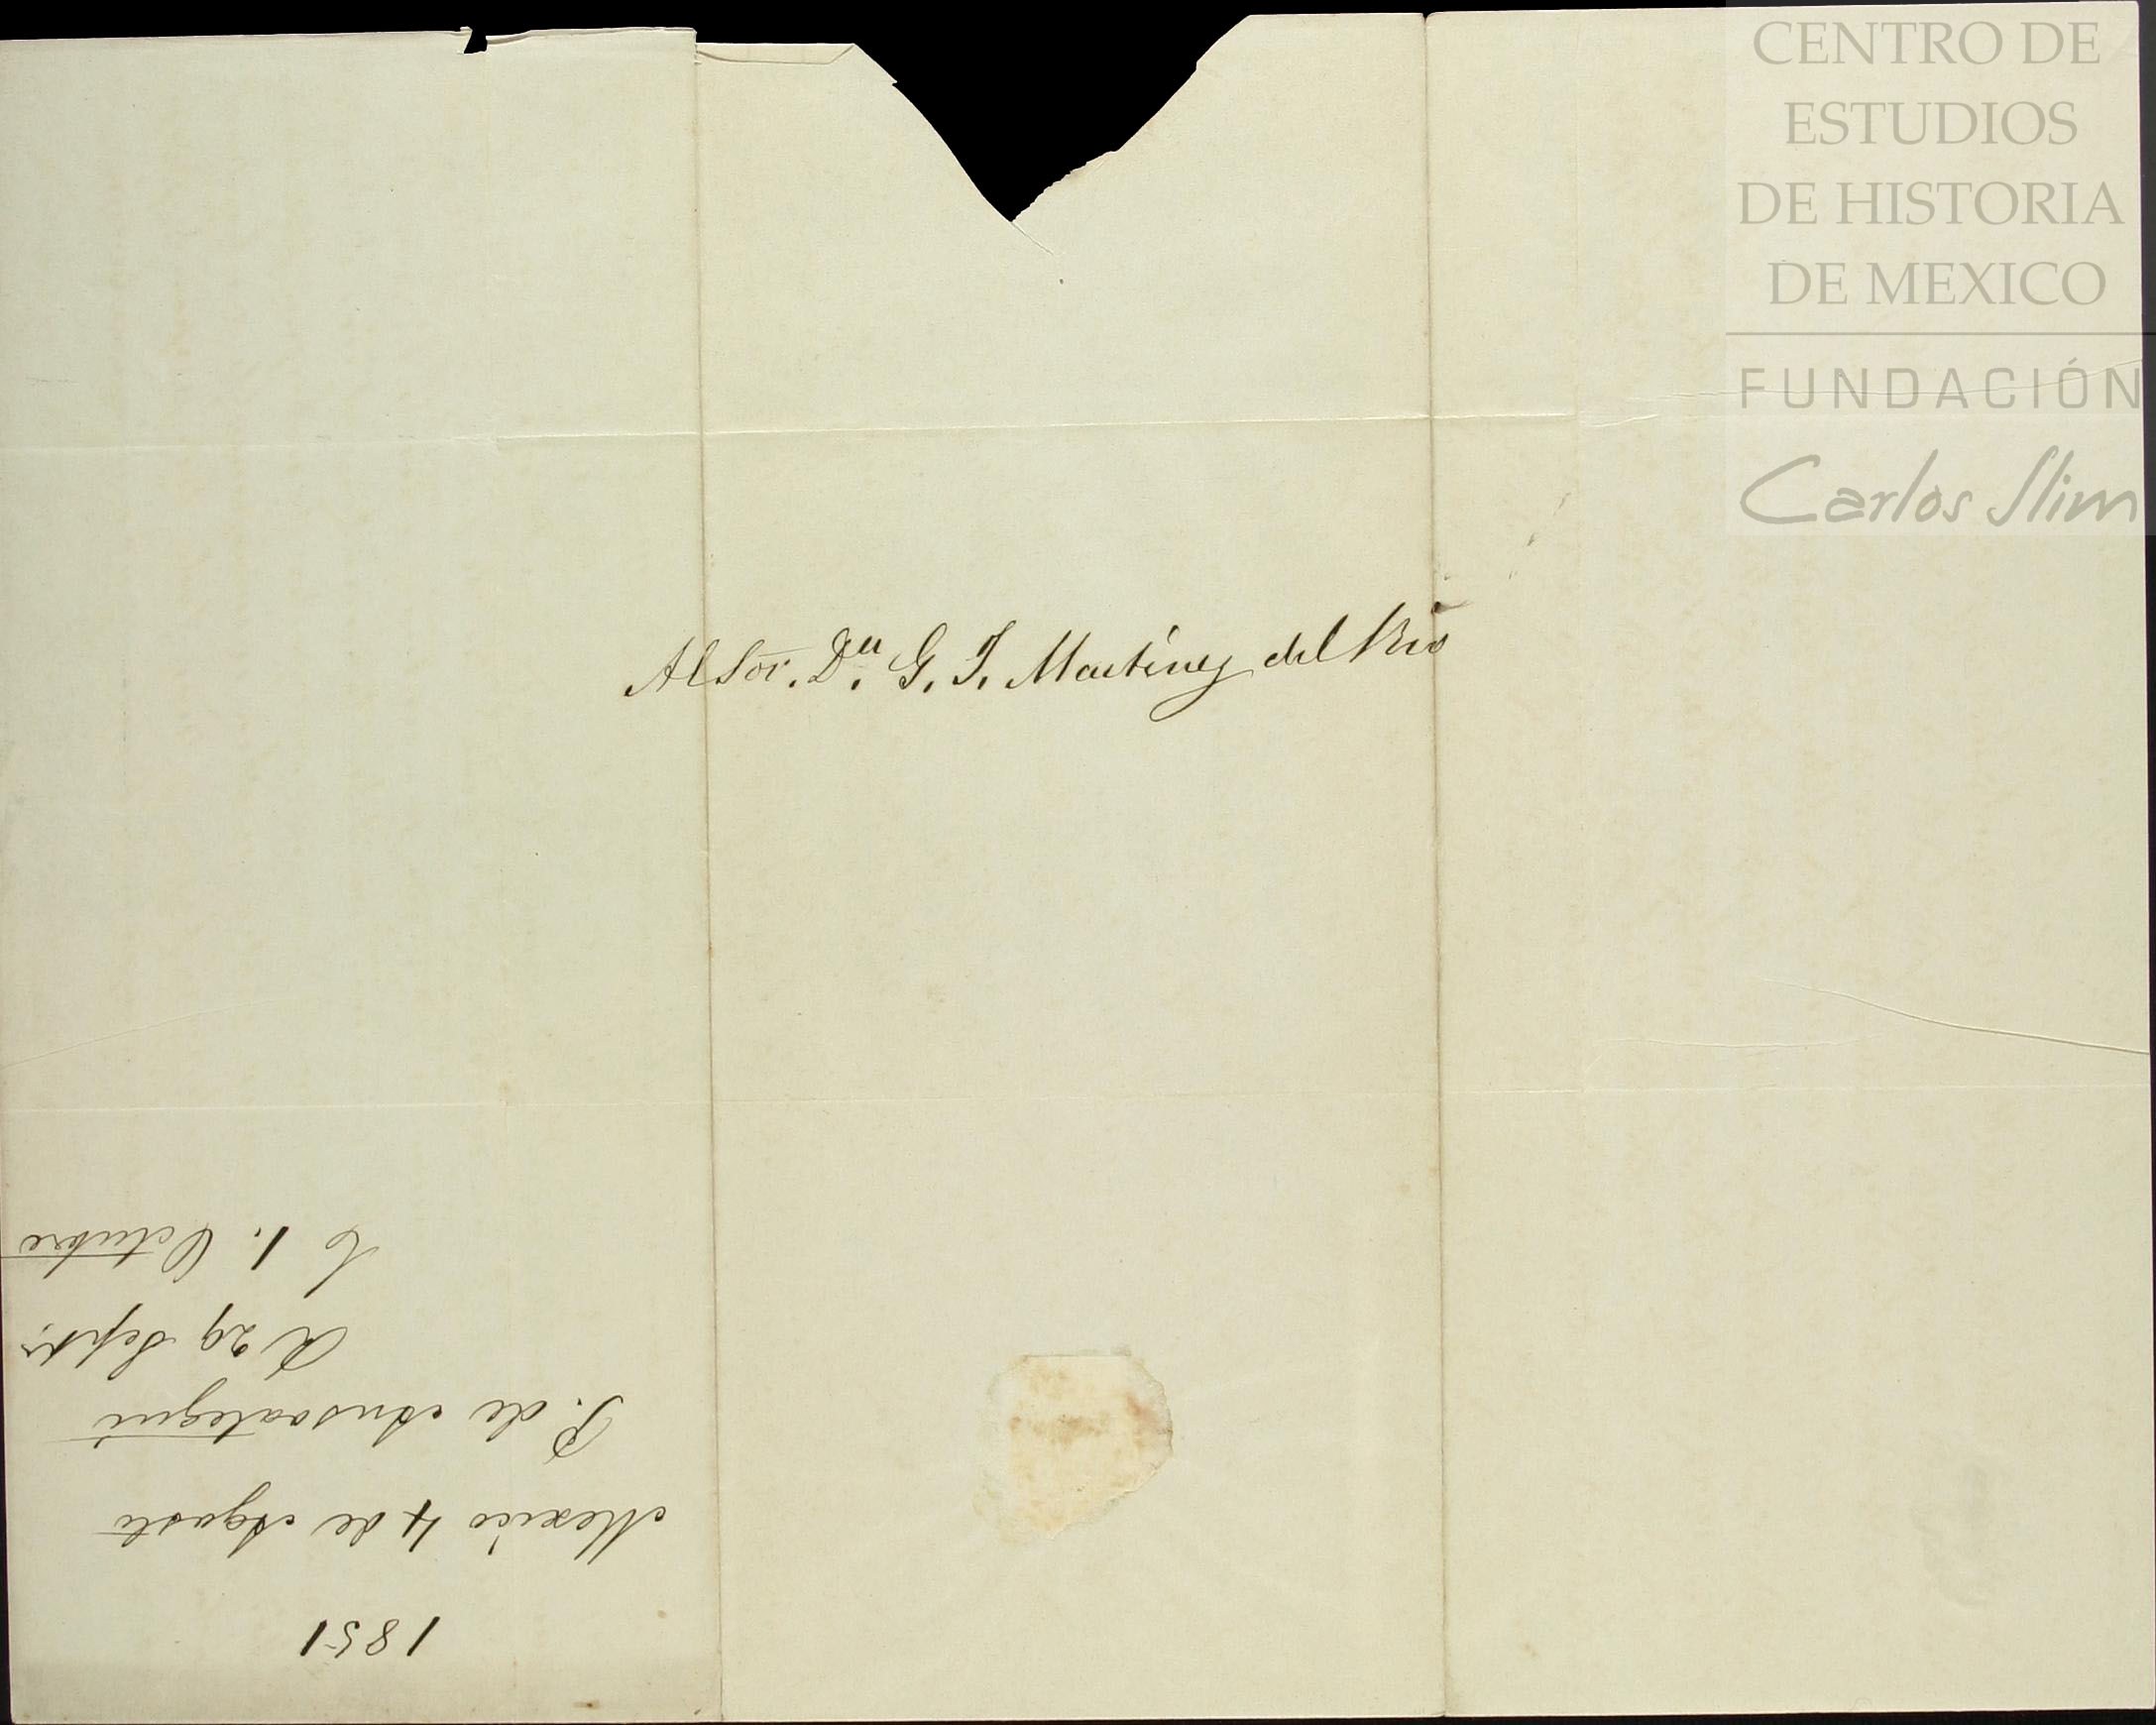 CENTRO DE
ESTUDIOS
DE HISTORIA
DE MEXICO
FUNDACIÓN
Carlos Slim
Al Sor. Dn. G. J. Martínez del Rio
1851
Mexico 4 de Agosto
P. de Ansoategui
R 29 Sept.
C 1. Octubre